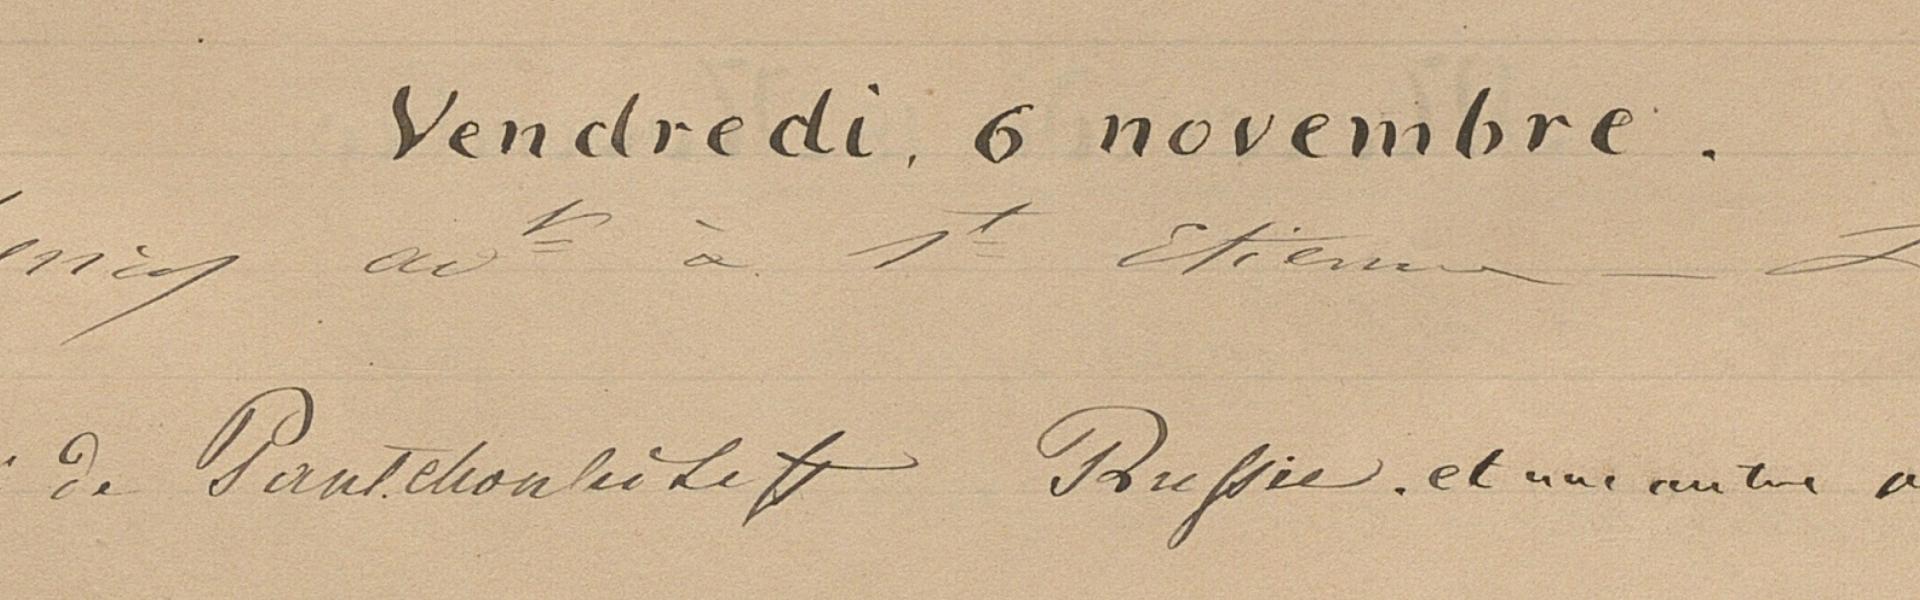 Vendredi, 6 novembre.
avt à St Etienne —
de Pantchoulidzeff Russie. et une autre